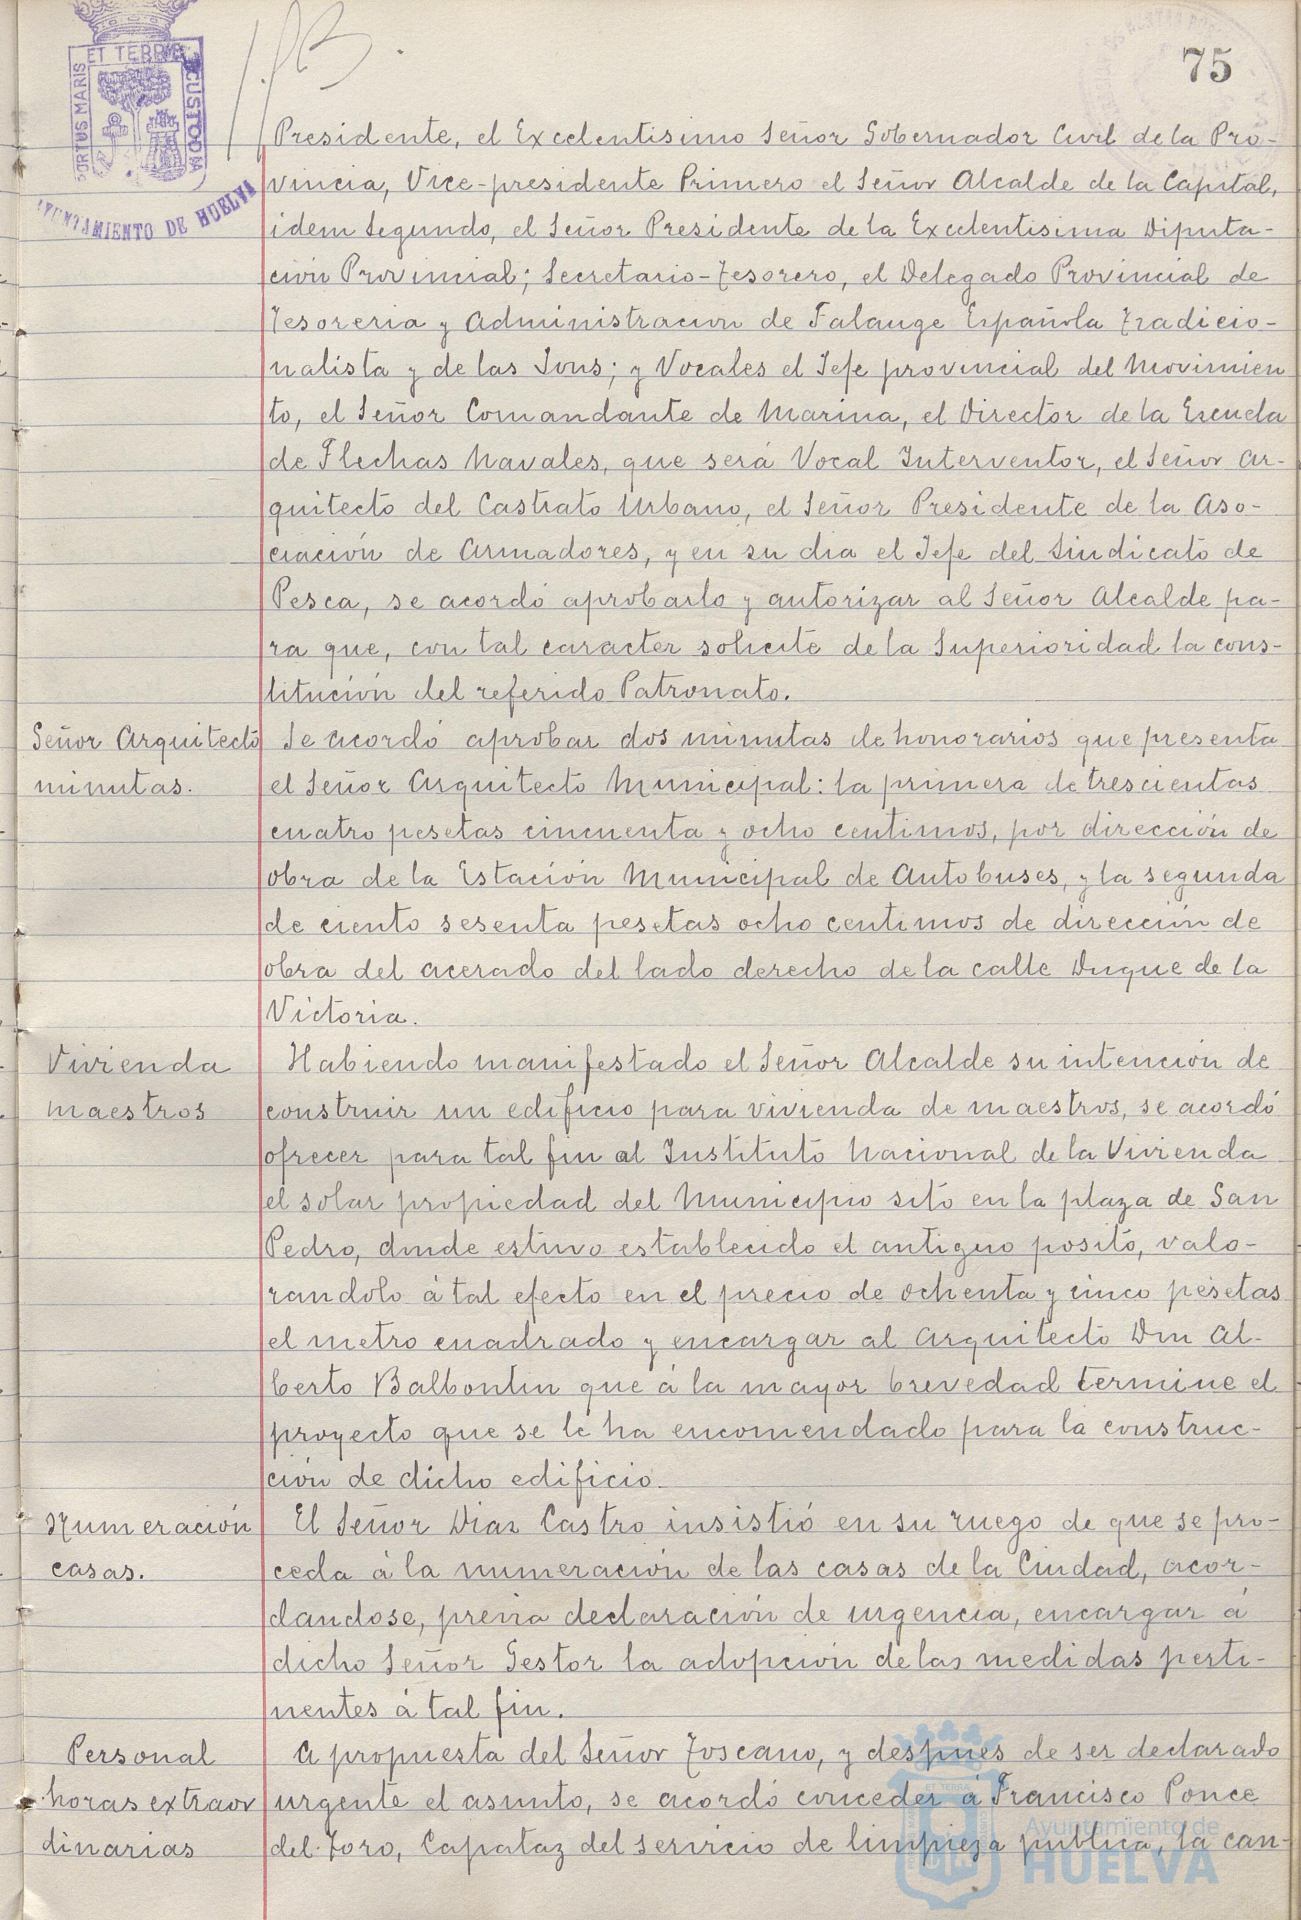 75
PORTUS MARIS ET TERRAE CUSTODIA
AYUNTAMIENTO DE HUELVA
Presidente, el Excelentisimo Señor Gobernador Civil de la Pro-
vincia, Vice-presidente Primero el Señor Alcalde de la Capital,
idem segundo, el Señor Presidente de la Excelentisima Diputa-
ción Provincial; Secretario-Tesorero, el Delegado Provincial de
Tesoreria y Administracion de Falange Española Tradicio-
nalista y de las Jons; y Vocales el Jefe provincial del Movimien
to, el Señor Comandante de Marina, el Director de la Escuela
de Flechas Navales, que será Vocal Interventor, el Señor Ar-
quitecto del Castrato Urbano, el Señor Presidente de la Aso-
ciación de Armadores, y en su dia el Jefe del Sindicato de
Pesca, se acordó aprobarlo y autorizar al Señor Alcalde pa-
ra que, con tal caracter solicite de la Superioridad la cons-
titución del referido Patronato.
Señor Arquitecto
minutas.
Se acordó aprobar dos minutas de honorarios que presenta
el Señor Arquitecto Municipal: la primera de trescientas
cuatro pesetas cincuenta y ocho centimos, por dirección de
obra de la Estación Municipal de Autobuses, y la segunda
de ciento sesenta pesetas ocho centimos de dirección de
obra del acerado del lado derecho de la calle Duque de la
Victoria.
Vivienda
maestros
Habiendo manifestado el Señor Alcalde su intención de
construir un edificio para vivienda de maestros, se acordó
ofrecer para tal fin al Instituto Nacional de la Vivienda
el solar propiedad del Municipio sito en la plaza de San
Pedro, donde estuvo establecido el antiguo posito, valo-
randolo á tal efecto en el precio de ochenta y cinco pesetas
el metro cuadrado y encargar al Arquitecto Don Al-
berto Balbontin que á la mayor brevedad termine el
proyecto que se le ha encomendado para la construc-
ción de dicho edificio.
Numeración
casas.
El Señor Diaz Castro insistió en su ruego de que se pro-
ceda á la numeración de las casas de la Ciudad, acor-
dandose, previa declaración de urgencia, encargar á
dicho Señor Gestor la adopción de las medidas perti-
nentes á tal fin.
Personal
horas extraor
dinarias
A propuesta del Señor Toscano, y despues de ser declarado
urgente el asunto, se acordó conceder á Francisco Ponce
del Toro, Capataz del servicio de limpieza publica, la can-
Ayuntamiento de
HUELVA